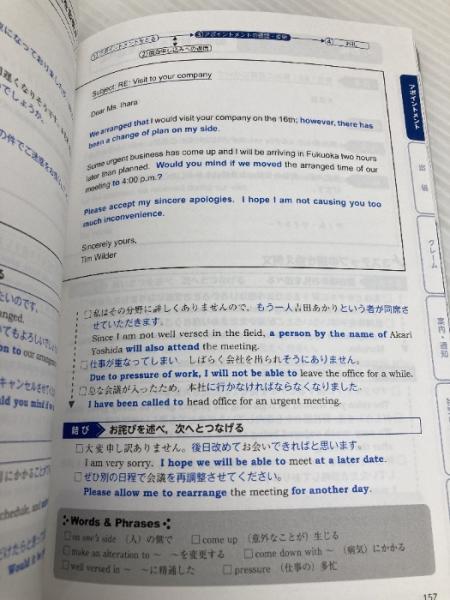 ①アポイントメントをとる
②面会申し込みへの返信
③アポイントメントの確認・変更
④お礼
Subject: RE: Visit to your company
Dear Ms. Ihara
We arranged that I would visit your company on the 16th; however, there has
been a change of plan on my side.
Some urgent business has come up and I will be arriving in Fukuoka two hours
later than planned. Would you mind if we moved the arranged time of our
meeting to 4:00 p.m.?
Please accept my sincere apologies. I hope I am not causing you too
much inconvenience.
Sincerely yours,
Tim Wilder
□私はその分野に詳しくありませんので、もう一人吉田あかりという者が同席さ
せていただきます。
Since I am not well versed in the field, a person by the name of Akari
Yoshida will also attend the meeting.
□仕事が重なってしまい、しばらく会社を出られそうにありません。
Due to pressure of work, I will not be able to leave the office for a while.
□急な会議が入ったため、本社に行かなければならなくなりました。
I have been called to head office for an urgent meeting.
結び お詫びを述べ、次へとつなげる
□大変申し訳ありません。後日改めてお会いできればと思います。
I am very sorry. I hope we will be able to meet at a later date.
□ぜひ別の日程で会議を再調整させてください。
Please allow me to rearrange the meeting for another day.
Words & Phrases
□on one's side （人）の側で □come up （意外なことが）生じる
□make an alteration to ～ ～を変更する □come down with ～ （病気）にかかる
□well versed in ～ ～に精通した □pressure （仕事の）多忙
157
アポイントメント
クレーム
案内・通知